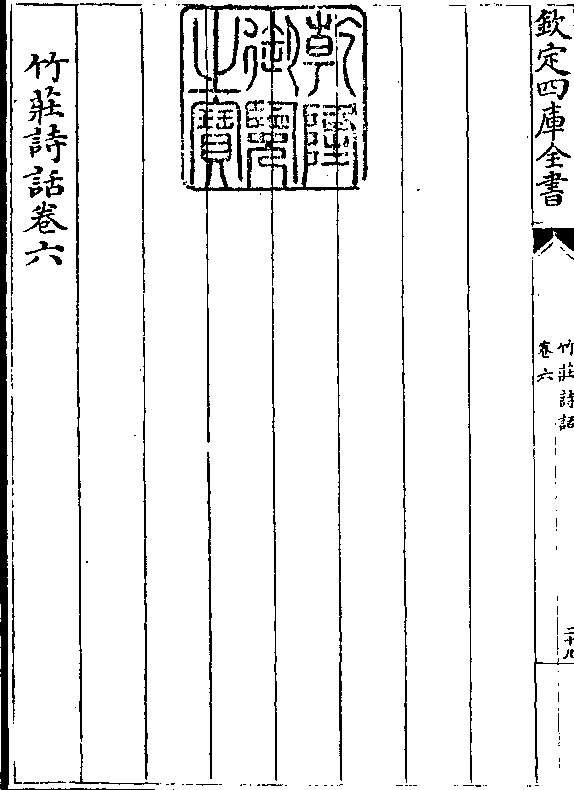 欽定四庫全書
竹莊詩話
卷六
二十八
乾隆
御覽
之寶
竹莊詩話卷六